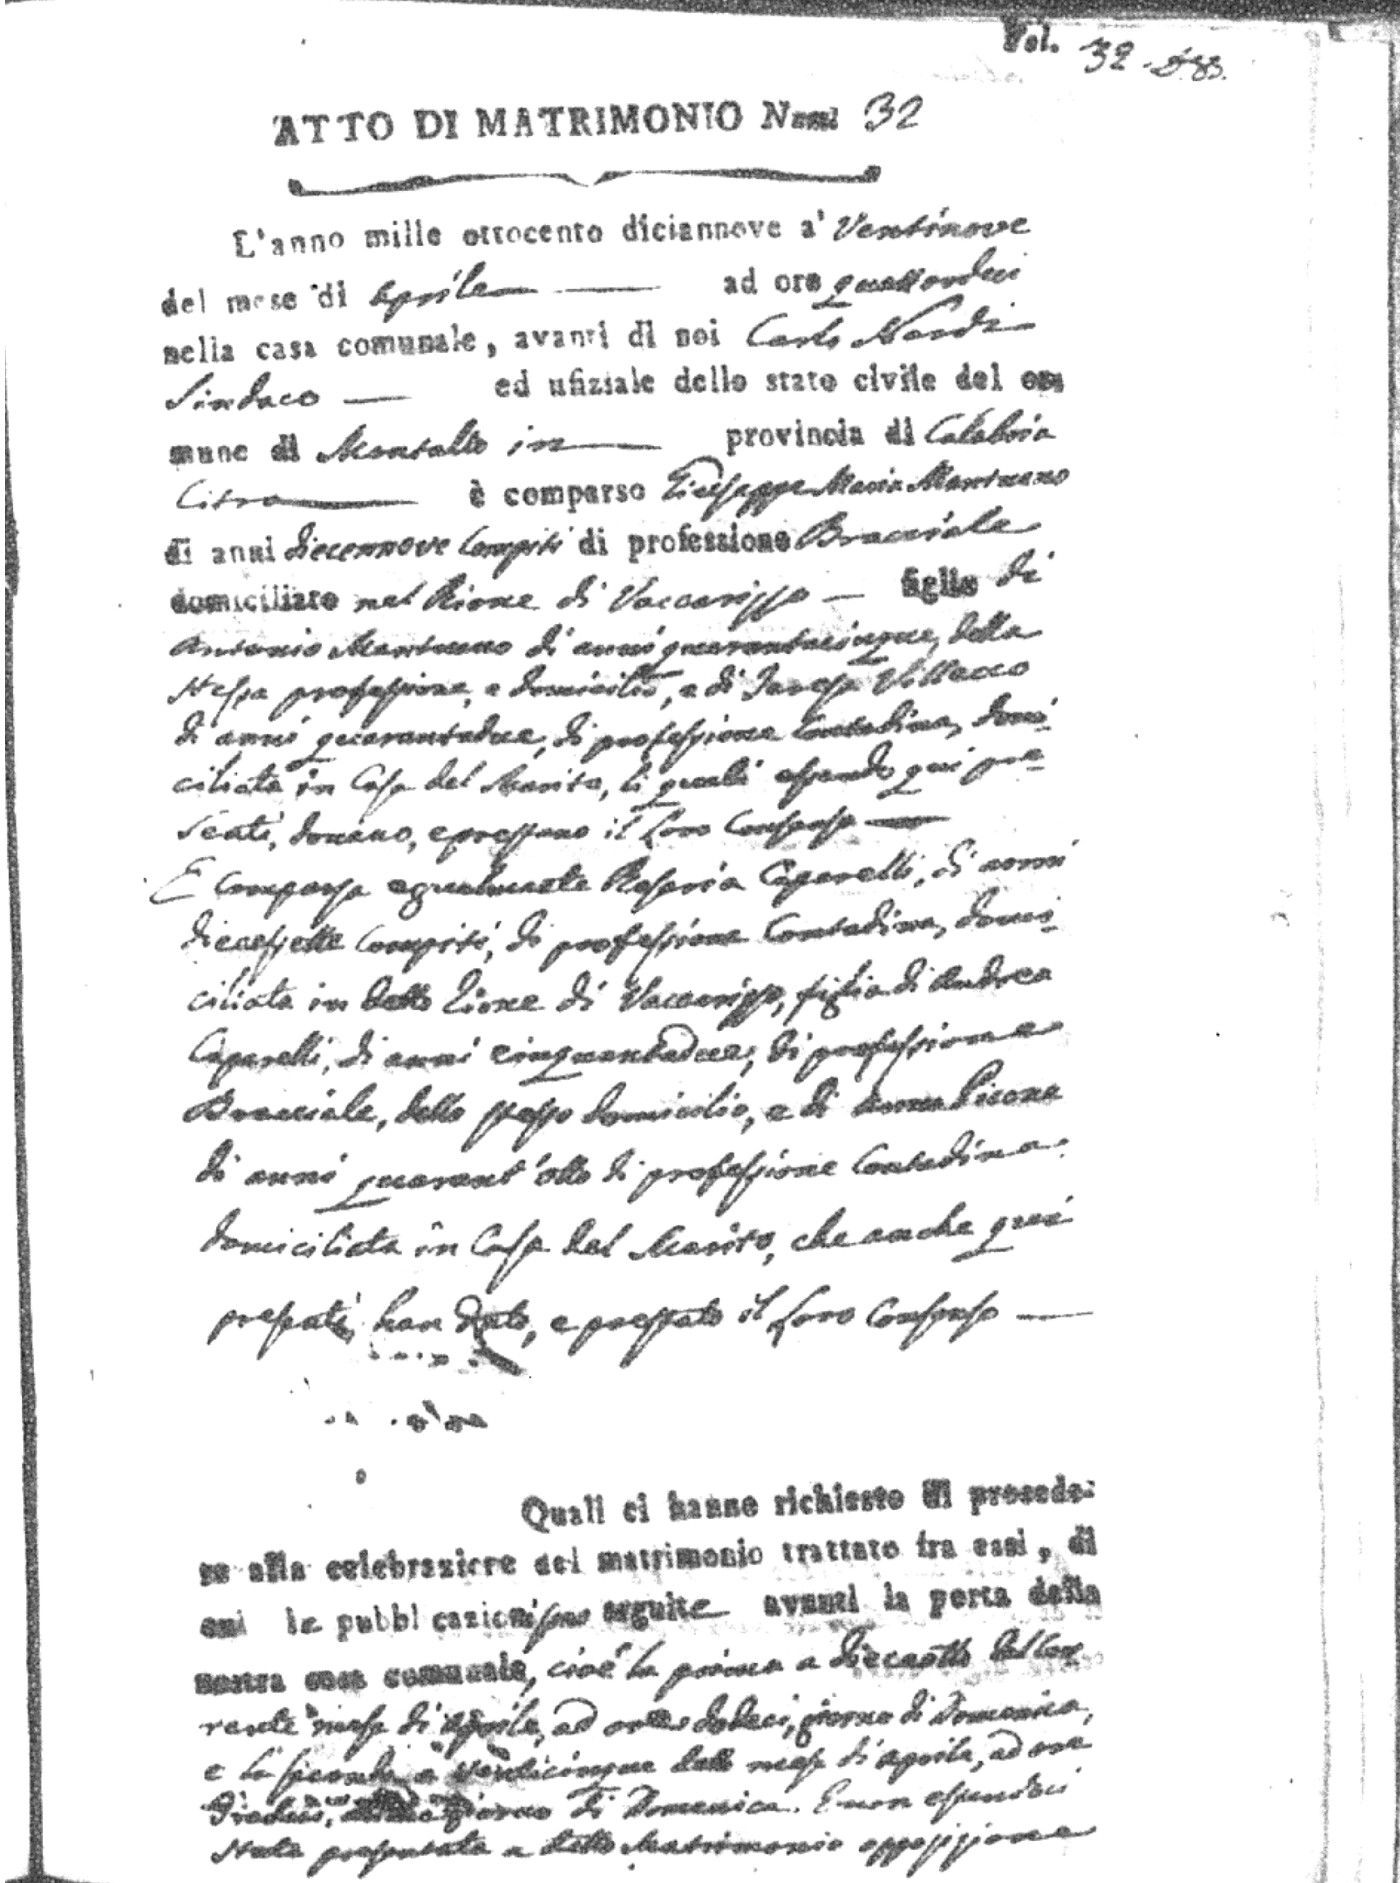 Vol. 32
ATTO DI MATRIMONIO Num 32
L'anno mille ottocento diciannove a' Ventinove
del mese di Aprile ad ore quattordeci
nella casa comunale, avanti di noi Carlo Nardi
Sindaco ed ufiziale dello stato civile del co-
mune di Montalto in provincia di Calabria
Citra è comparso Giuseppe Maria Mantuano
di anni diecennove Compiti di professione Bracciale
domiciliato nel Rione di Vaccarizzo figlio di
Antonio Mantuano di anni quarantacinque, della
stessa professione, e domicilio, e di Teresa Villacco
di anni quarantadue, di professione Contadina, domi-
ciliata in Casa del Marito, li quali essendo qui pre-
senti, donano, e prestano il Loro Consenso
E Comparsa egualmente Rosaria Caparelli, di anni
diecessette Compiti, di professione Contadina, domi-
ciliata in detto Rione di Vaccarizzo, figlia di Andrea
Caparelli, di anni cinquantadue, di professione
Bracciale, dello stesso domicilio, e di Anna Picone
di anni quarant'otto di professione Contadina
domiciliata in Casa del Marito, che anche qui
presenti, han dato, e prestato il Loro Consenso
Quali ci hanno richiesto di procede-
re alla celebrazione del matrimonio trattato fra essi, di
cui le pubblicazioni sono seguite avanti la porta della
nostra casa comunale, cioè la prima a dieceotto del Cor
rente mese di Aprile, ad ore dodeci, giorno di Domenica,
e la seconda a Venticinque detto mese di Aprile, ad ore
Tredeci, giorno di Domenica. E non essendoci
stata presentata a detto Matrimonio opposizione